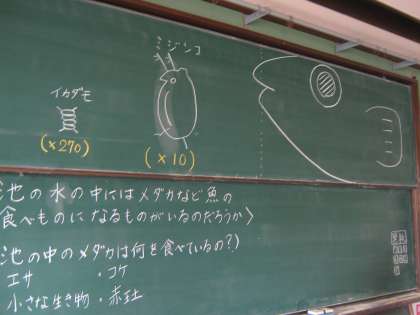 ミジンコ
イカダモ
(×270)
(×10)
池の水の中にはメダカなど魚の
食べものになるものがいるのだろうか〉
池の中のメダカは何を食べているの?)
エサ ・コケ
小さな生き物 ・赤玉土